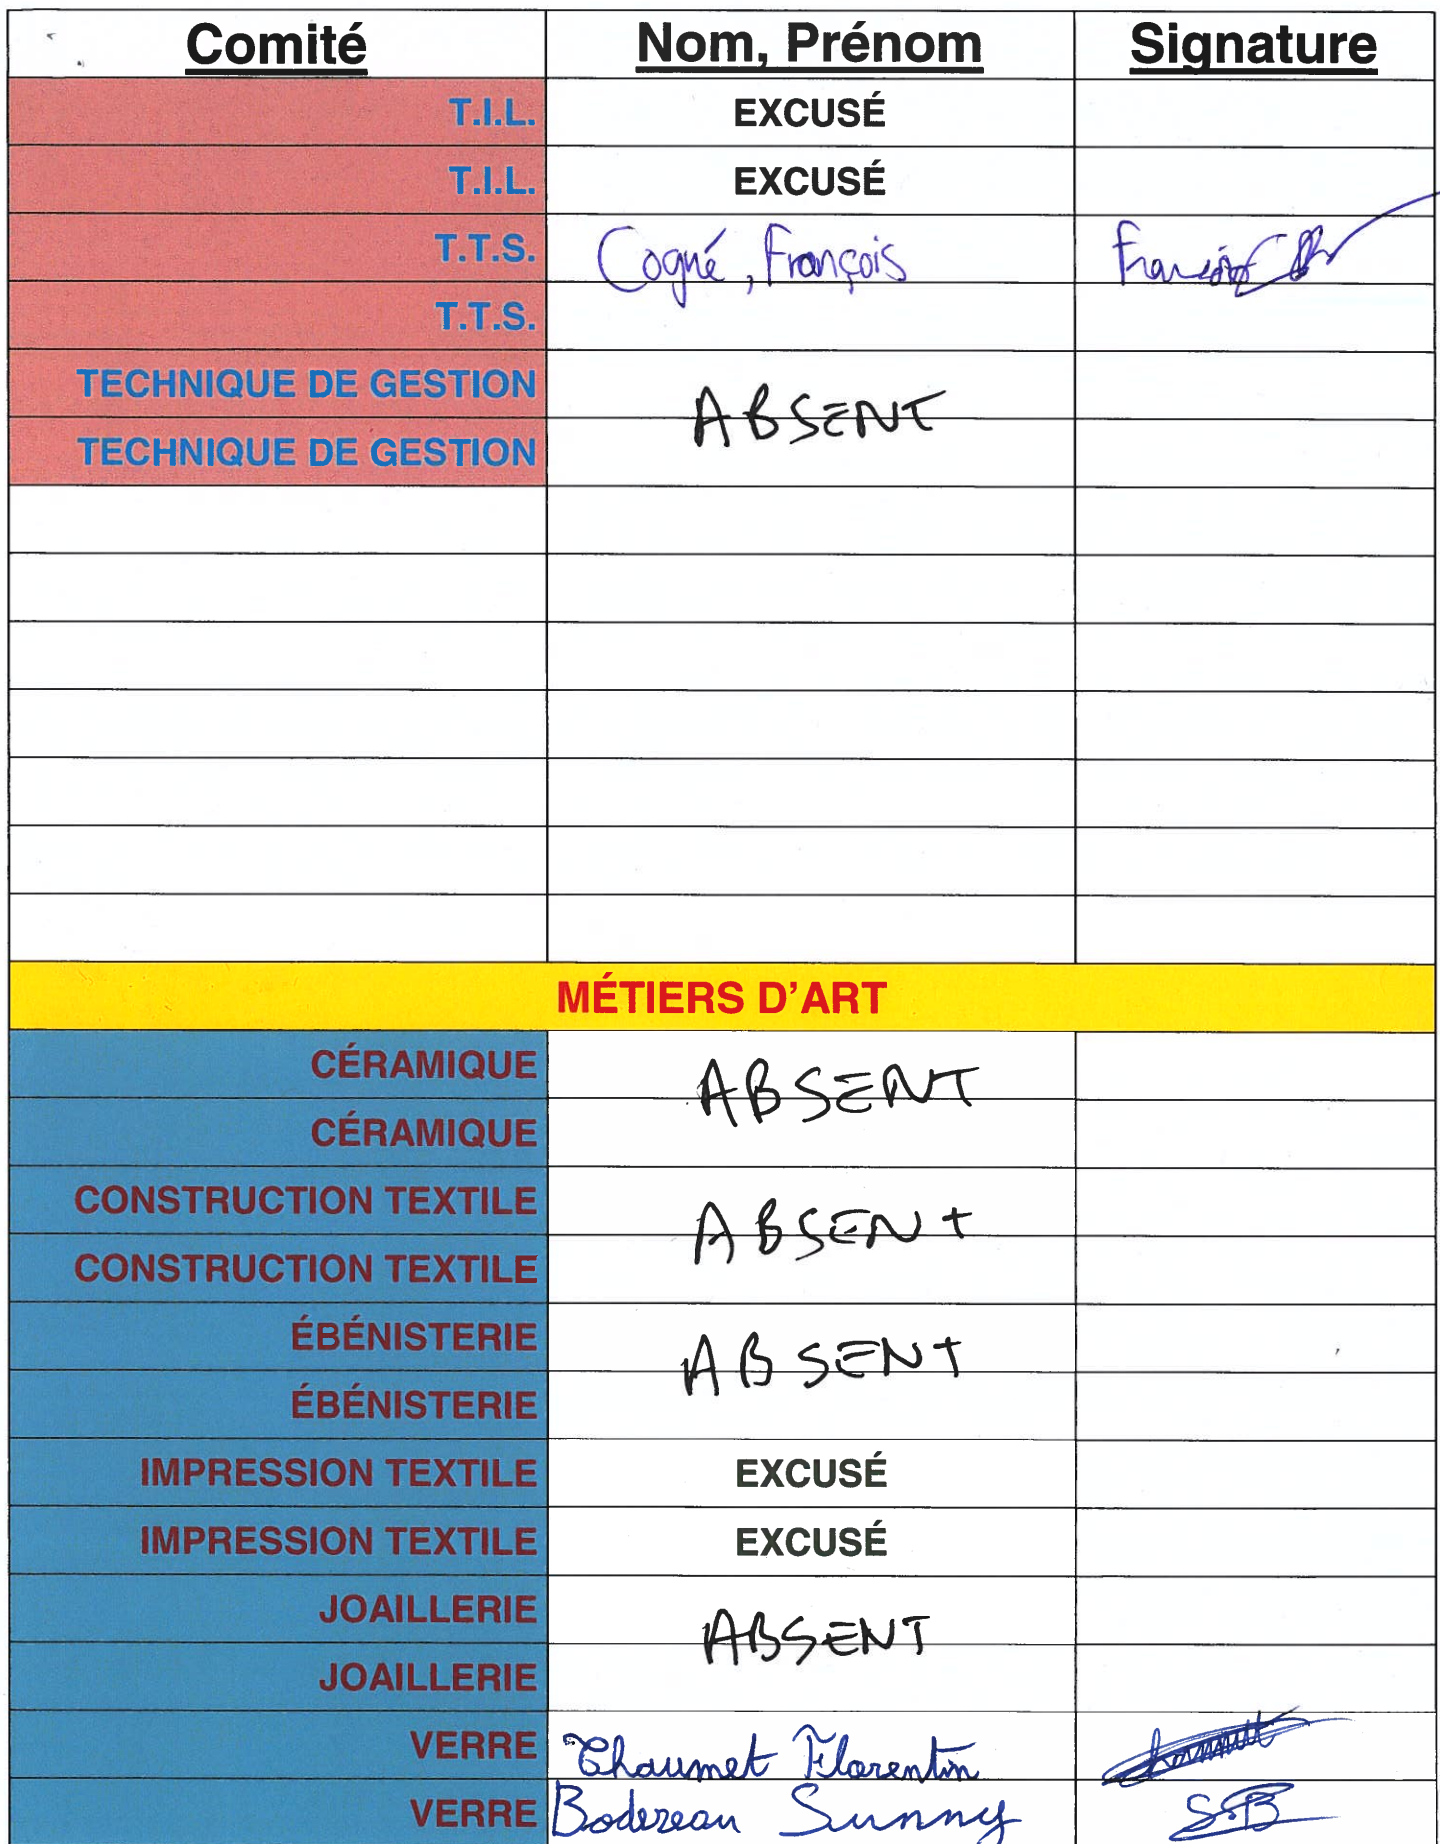 Comité Nom, Prénom Signature
T.I.L. EXCUSÉ
T.I.L. EXCUSÉ
T.T.S. Cogné, François
T.T.S.
TECHNIQUE DE GESTION
ABSENT
TECHNIQUE DE GESTION
MÉTIERS D'ART
CÉRAMIQUE
ABSENT
CÉRAMIQUE
CONSTRUCTION TEXTILE
ABSENT
CONSTRUCTION TEXTILE
ÉBÉNISTERIE
ABSENT
ÉBÉNISTERIE
IMPRESSION TEXTILE EXCUSÉ
IMPRESSION TEXTILE EXCUSÉ
JOAILLERIE
ABSENT
JOAILLERIE
VERRE Chaumet Florentin
VERRE Bodereau Sunny S.B